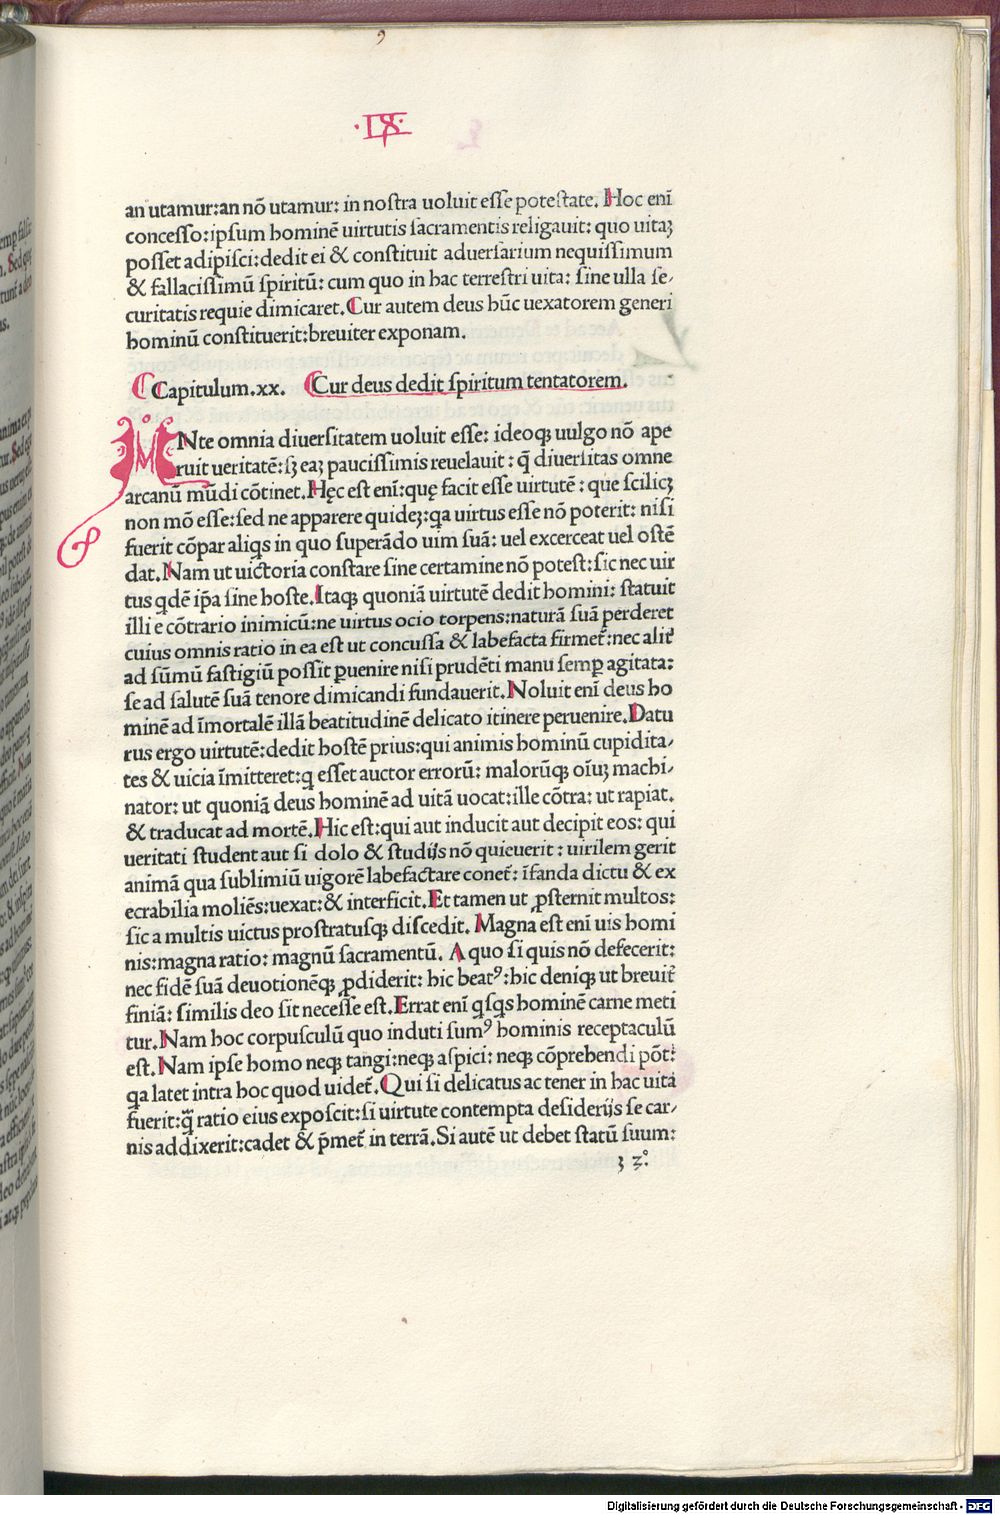 ·IX·
an utamur:an nō utamur: in nostra uoluit esse potestate. Hoc eni
concesso:ipsum hominē uirtutis sacramentis religauit: quo uitaꝫ
posset adipisci:dedit ei & constituit aduersarium nequissimum
& fallacissimū spiritū: cum quo in hac terrestri uita: sine ulla se⸗
curitatis requie dimicaret. Cur autem deus hūc uexatorem generi
hominū constituerit:breuiter exponam.
Capitulum.xx. Cur deus dedit spiritum tentatorem.
Nte omnia diuersitatem uoluit esse: ideoqꝫ uulgo nō ape
ruit ueritatē: sꝫ eaꝫ paucissimis reuelauit: q̄ diuersitas omne
arcanū mūdi cōtinet. Hęc est eni:quę facit esse uirtutē: que scilicꝫ
non mō esse:sed ne apparere quideꝫ:qa uirtus esse nō poterit: nisi
fuerit cōpar aliqs in quo superādo uim suā: uel excerceat uel ostē
dat. Nam ut uictoria constare sine certamine nō potest: sic nec uir
tus qdē ip̄a sine hoste. Itaqꝫ quoniā uirtutē dedit homini: statuit
illi e cōtrario inimicū:ne uirtus ocio torpens:naturā suā perderet
cuius omnis ratio in ea est ut concussa & labefacta firmet̄:nec alit̄
ad sūmū fastigiū possit ꝑuenire nisi prudēti manu semꝑ agitata:
se ad salutē suā tenore dimicandi fundauerit. Noluit eni deus ho
minē ad īmortalē illā beatitudinē delicato itinere peruenire. Datu
rus ergo uirtutē:dedit hostē prius:qui animis hominū cupidita⸗
tes & uicia īmitteret:q esset auctor errorū: malorūqꝫ oīuꝫ machi⸗
nator: ut quoniā deus hominē ad uitā uocat:ille cōtra: ut rapiat.
& traducat ad mortē. Hic est:qui aut inducit aut decipit eos: qui
ueritati student aut si dolo & studijs nō quieuerit: uirilem gerit
animā qua sublimiū uigorē labefactare conet̄: īfanda dictu & ex
ecrabilia moliēs:uexat:& interficit. Et tamen ut ꝓsternit multos:
sic a multis uictus prostratusqꝫ discedit. Magna est eni uis homi
nis:magna ratio: magnū sacramentū. A quo si quis nō defecerit:
nec fidē suā deuotionēqꝫ ꝓdiderit: hic beatꝰ:hic deniqꝫ ut breuit̄
finiā: similis deo sit necesse est. Errat eni qsqs hominē carne meti
tur. Nam hoc corpusculū quo induti sumꝰ hominis receptaculū
est. Nam ipse homo neqꝫ tangi:neqꝫ aspici: neqꝫ cōprehendi pōt:
qa latet intra hoc quod uidet̄. Qui si delicatus ac tener in hac uita
fuerit:q̄ ratio eius exposcit:si uirtute contempta desiderijs se car⸗
nis addixerit:cadet & p̄met̄ in terrā. Si autē ut debet statū suum:
Digitalisierung gefördert durch die Deutsche Forschungsgemeinschaft - DFG